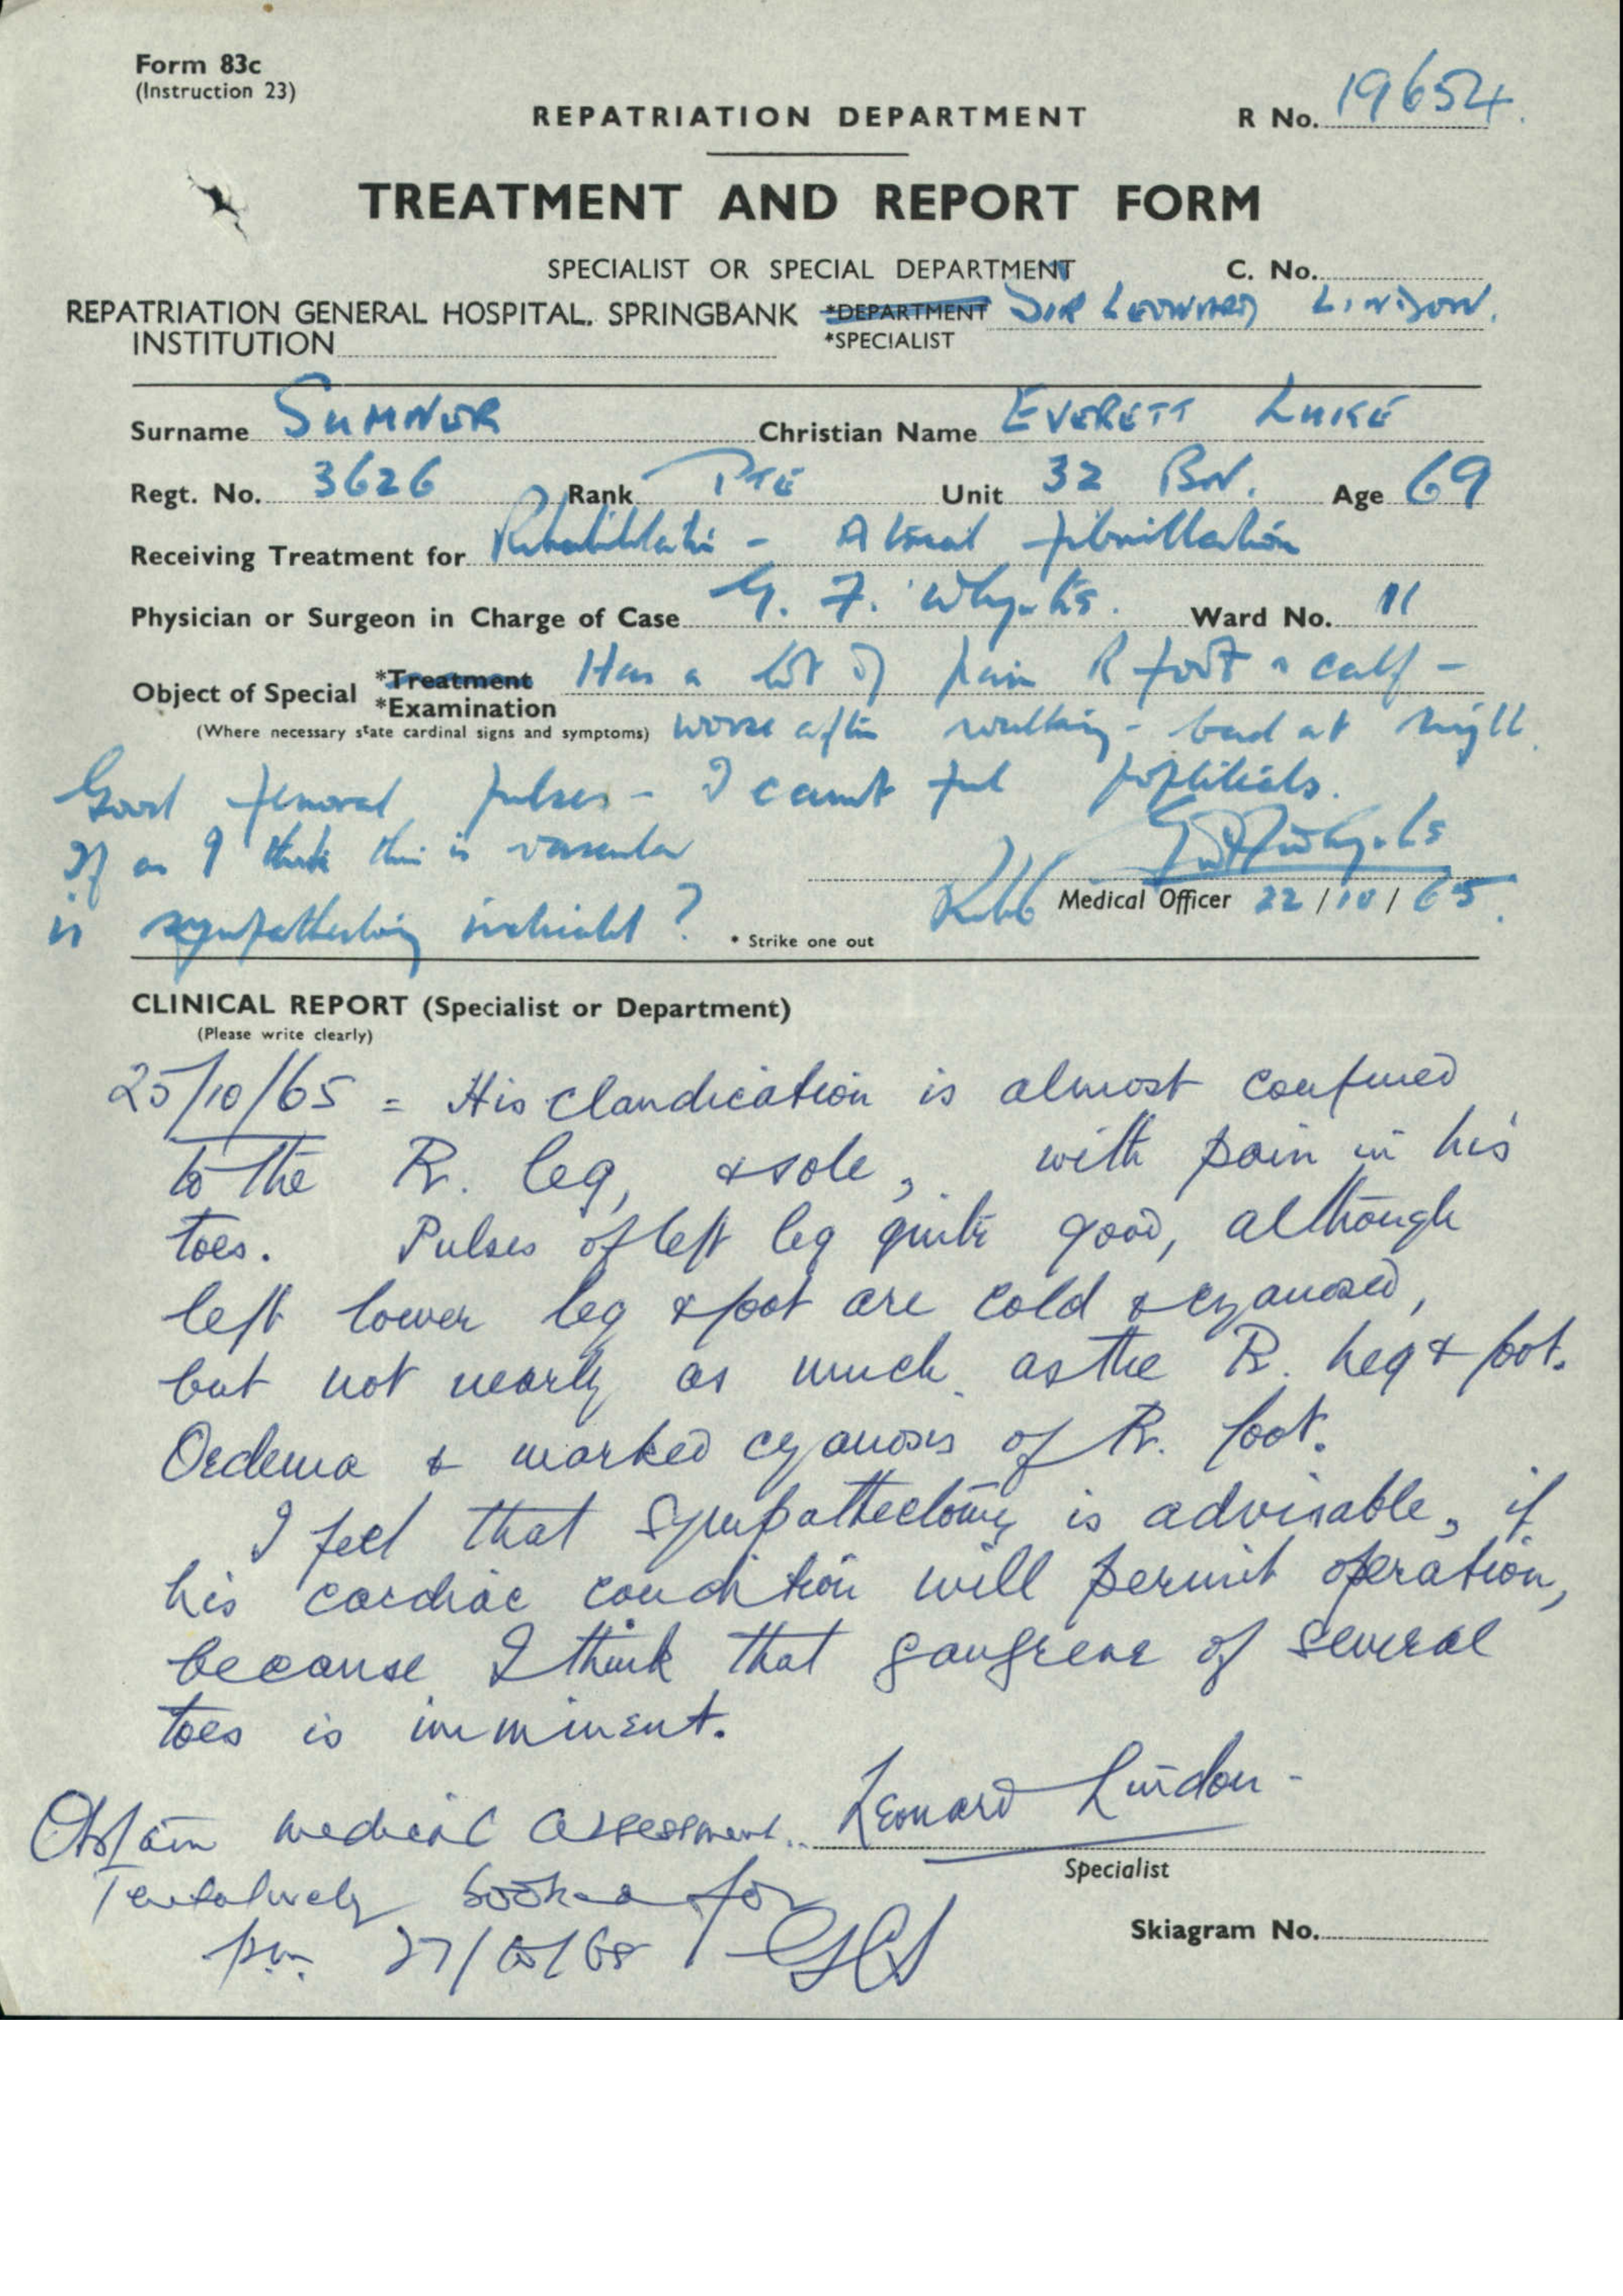 Form 83c
(Instruction 23)
REPATRIATION DEPARTMENT
R No. 19654.
TREATMENT AND REPORT FORM
SPECIALIST OR SPECIAL DEPARTMENT
C. No.
REPATRIATION GENERAL HOSPITAL. SPRINGBANK *DEPARTMENT SIR LEONARD LINDON.
INSTITUTION *SPECIALIST
Surname SUMNER Christian Name EVERETT LUKE
Regt. No. 3626 Rank PTE Unit 32 BN. Age 69
Receiving Treatment for - Atrial fibrillation
Physician or Surgeon in Charge of Case G. F. Ward No. 11
Object of Special *Treatment *Examination Has a lot of pain R foot & calf -
(Where necessary state cardinal signs and symptoms) worse after walking - bad at night.
Good femoral pulses - I cannot feel popliteals.
If as I think this is vascular
Medical Officer 22/10/65.
is ?
* Strike one out
CLINICAL REPORT (Specialist or Department)
(Please write clearly)
25/10/65 = His claudication is almost confined
to the R. leg, & sole, with pain in his
toes. Pulses of left leg quite good, although
left lower leg & foot are cold & cyanosed,
but not nearly as much as the R. leg & foot.
Oedema & marked cyanosis of R. foot.
I feel that sympathectomy is advisable, if
his cardiac condition will permit operation,
because I think that gangrene of several
toes is imminent.
Obtain medical assessment. Leonard Lindon -
Specialist
Tentatively booked for
Skiagram No.
pm. 27/10/65